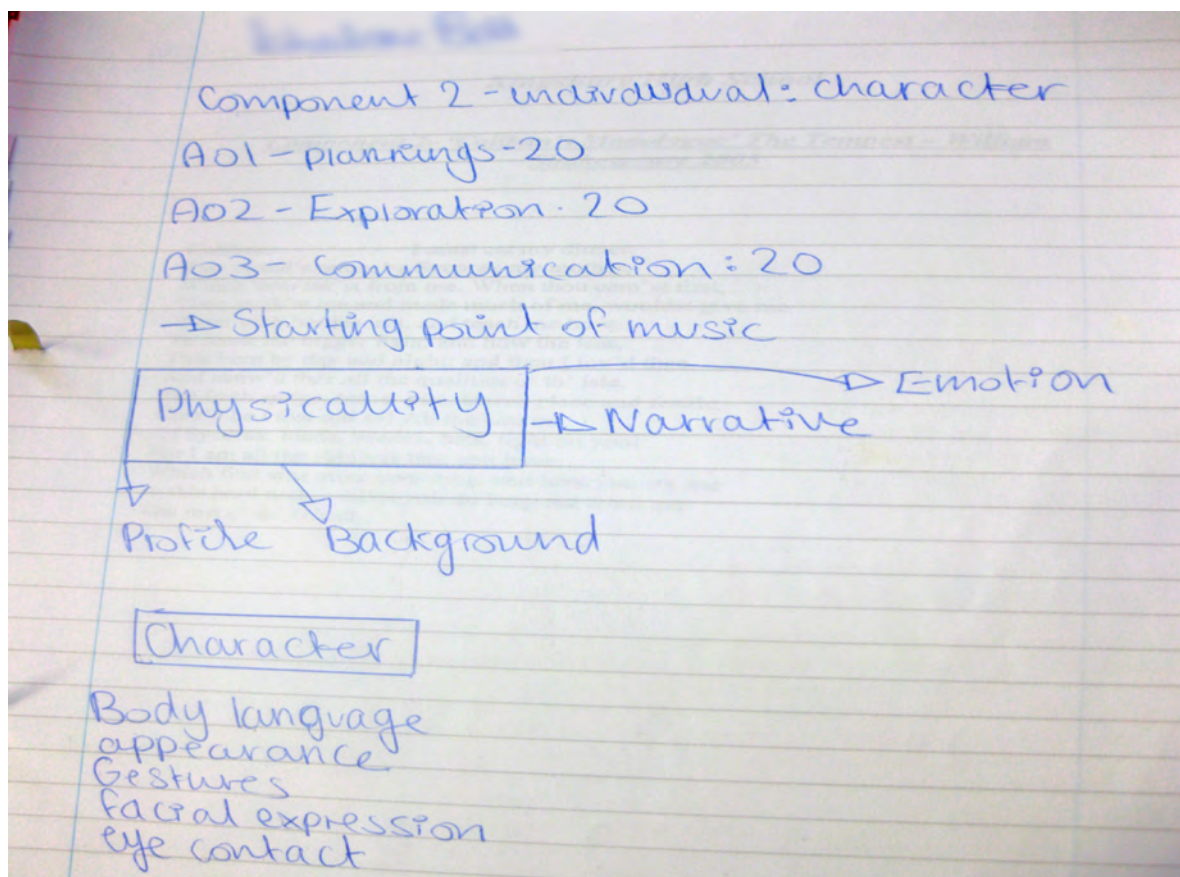 Component 2 - individual: character
A01 - plannings - 20
A02 - Exploration. 20
A03 - Communication: 20
→ Starting point of music
Physicality → Emotion
→ Narrative
Profile Background
Character
Body language
appearance
Gestures
facial expression
eye contact